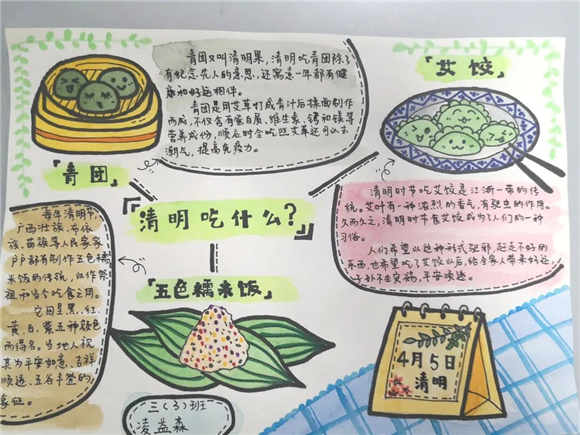 青团又叫清明果，清明吃青团除了
有纪念先人的意思，还寓意一年都有健
康和好运相伴。
青团是用艾草打成青汁后揉面制作
而成，不仅含有蛋白质、维生素、钙和镁等
营养成份，顺应时令吃些艾草还可以去
潮气，提高免疫力。
「青团」
「艾饺」
清明时节吃艾饺是江浙一带的传
统。艾叶有一种浓烈的香气，有驱虫的作用。
久而久之，清明时节食艾饺成为了人们的一种
习俗。
人们希望以这种形式驱邪，赶走不好的
东西，也希望吃了艾饺以后，给全家人带来好运，
平安顺遂。
「清明吃什么？」
每年清明节，
广西壮族、布依
族、苗族等人民家家
户户都有制作五色糯
米饭的传统，以作祭
祖和当令吃食之用。
它因呈黑、红、
黄、白、紫五种颜色
而得名。当地人视
其为平安如意、吉祥
顺遂、五谷丰登的
象征。
「五色糯米饭」
4月5日
清明
三（3）班
凌益森